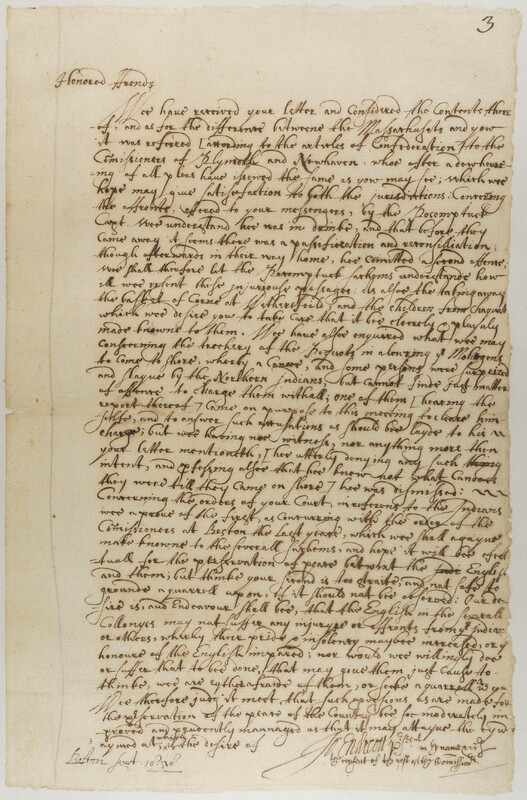 3
Honored Frends
Wee have received your letter and Considered the Contents there
of, and as for the difference betweene the Massachusets and you
it was referred (according to the articles of Confederation) to the
Comissioners of Plymoth and Newhaven, whoe after a dew heare-
ing of all pleas have issewed the same as you may see; which wee
hope may give satisfaction to both the jurisdictions. Concerning
the affronte offered to your messengers; by the Pocomptuck
Capt. Wee understand hee was in drinke, and that before they
Came away it seems there was a passification and reconsiliation;
though afterwards in their way home, hee Comitted a second offence,
Wee shall therfore let the Pocomptuck sachims understande how
ill wee resent those injuriouse passages: as alsoe the taking away
the basket of Corne at Wethersfeild and the Children from
which wee desire you to take Care that it bee cleerly & playnly
made knowne to them. Wee have alsoe enquired what wee may
Conserning the trechery of the Pequots in alewring ye Mohegens
to Come to shore, wherby a Canooe, and some persons were surprized
and slayne by the Northern Indians, but Cannot finde just matter
of offence to Charge them withall; one of them (hearing the
report therof) Came on a purpose to this meeting to cleare him
selfe, and to answer such accusations as should bee layde to his
charge; but wee having noe witness, nor any thing more then
your letter mentioneth, (hee utterly denying any such
intent, and professing alsoe that hee knew not what Canooes
they were till they Came on shore) hee was dismissed:
Concerning the orders of your Court, in reference to the Indians
wee aprove of the first, as Concurring with the order of the
Comissioners at Boston the last yeare, which wee shall agayne
make knowne to the severall sachems, and hope it will bee efect
tuall for the preservation of peace betwixt the English
and them; but thinke your second is too straite, and not safe to
grounde a quarrell upon, if it should not bee observed: Our de-
sire is, and Endeavour shall bee, that the English in the severall
Collonyes may not suffer any injuryes or affronts from ye Indians
or others, wherby their pride & insolency may bee increased, or ye
honoure of the English impared; nor would wee willingly doe
or suffer that to bee done, that may give them just Cause to
thinke, wee are eyther afraide of them, or seeke a quarrell wth ym
Wee therfore judg it meet, that such provisions as are made for
the preservation of the peace of the Country bee soe moderately im-
proved and prudently mannaged as that it may attayne the
aymed at; which is the desire of
Jo: Endecott Presidnt
in ye name and
of the rest of the Comissionrs
Boston Sept. 1658